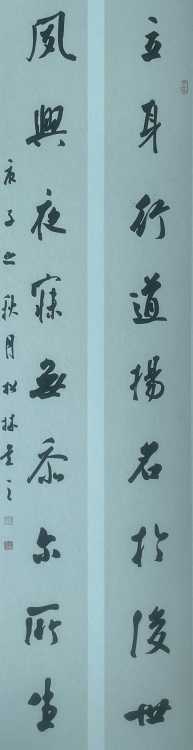 立身行道揚名於後世
夙興夜寐無忝尔所生
庚子之秋月松林書之